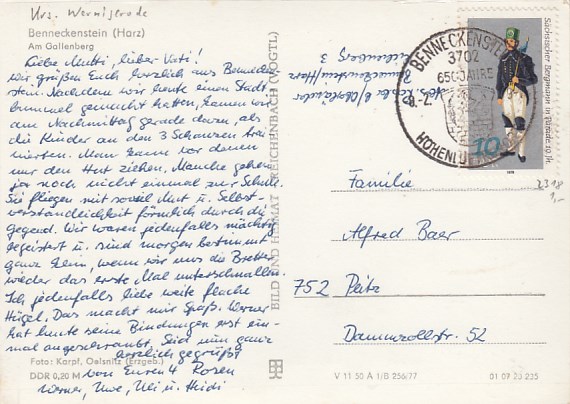 Krs. Wernigerode
Benneckenstein (Harz)
Am Gallenberg
Liebe Mutti, lieber Vati!
Wir grüßen Euch herzlich aus Bennecken-
stein. Nachdem wir heute einen Stadt-
bummel gemacht hatten, kamen wir
am Nachmittag gerade dazu, als
die Kinder an den 3 Schanzen trai-
nierten. Man kann vor denen
nur den Hut ziehen. Manche gehen
ja noch nicht einmal zur Schule.
Sie fliegen mit soviel Mut u. Selbst-
verständlichkeit förmlich durch die
Gegend. Wir waren jedenfalls mächtig
begeistert u. sind morgen bestimmt
ganz klein, wenn wir uns die Bretter
wieder das erste Mal unterschnallen.
Ich jedenfalls liebe weite flache
Hügel. Das macht mir Spaß. Werner
hat heute seine Bindungen erst ein-
mal angeschraubt. Seid nun ganz
herzlich gegrüßt
von Euren 4 Rosen
Werner, Uwe, Uli u. Heidi
Foto: Karpf, Oelsnitz (Erzgeb.)
DDR 0,20 M
BILD UND HEIMAT REICHENBACH (VOGTL)
Benneckenstein/Harz
BENNECKENSTEIN
3702
650 JAHRE
8.-2.
HÖHENLUFT
Sächsischer Bergmann in Parade 19. Jh.
10
DDR
1978
2318
1,-
Familie
Alfred Baer
752 Peitz
Dammzollstr. 52
V 11 50 A 1/B 256/77
01 07 23 235